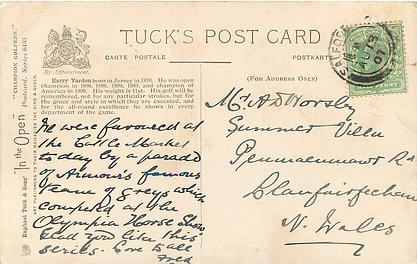 TUCK'S POST CARD
CARTE POSTALE
POSTKARTE
By Appointment.
(FOR ADDRESS ONLY)
"CHAMPION GOLFERS."
Postcard. Series 6450
"In the Open"
Raphael Tuck & Sons'
ART PUBLISHERS TO THEIR MAJESTIES THE KING & QUEEN.
Harry Vardon born in Jersey in 1870. He was open
champion in 1896, 1898, 1899, 1903, and champion of
America in 1900. His weight is 11st. His golf will be
remembered, not for any particular strokes, but for
the grace and style in which they are executed, and
for the all-round excellence he shows in every
department of the game.
We were favoured at
the Cattle Market
to day by a parade
of Armour's famous
team of greys which
competed at the
Olympia Horse Show
Glad you like this
series. Love to all
Fred
Mrs A D Worsley
Summer Villa
Penmaenmawr Rd
Llanfairfechan
N. Wales